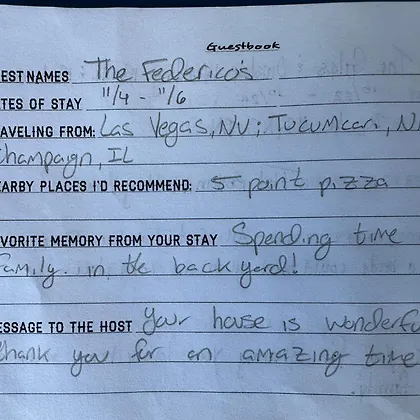 Guestbook
EST NAMES The Federico's
ATES OF STAY 11/4 - 11/6
AVELING FROM: Las Vegas, NV; Tucumcari, N
Champaign, IL
EARBY PLACES I'D RECOMMEND: 5 point pizza
AVORITE MEMORY FROM YOUR STAY Spending time
family in the back yard!
ESSAGE TO THE HOST Your house is wonderfu
thank you for an amazing time